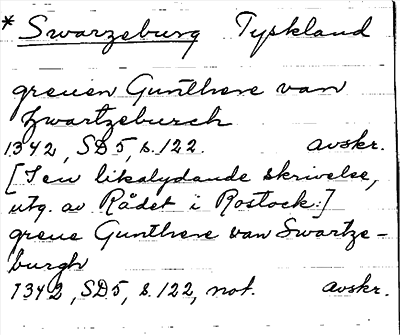 * Swarzeburg Tyskland
greuen Gunthere van
Zwartzeburch
1342, SD5, s. 122. avskr.
[I en likalydande skrivelse,
utg. av Rådet i Rostock:]
greue Gunthere van Swartze-
burgh
1342, SD5, s. 122, not. avskr.